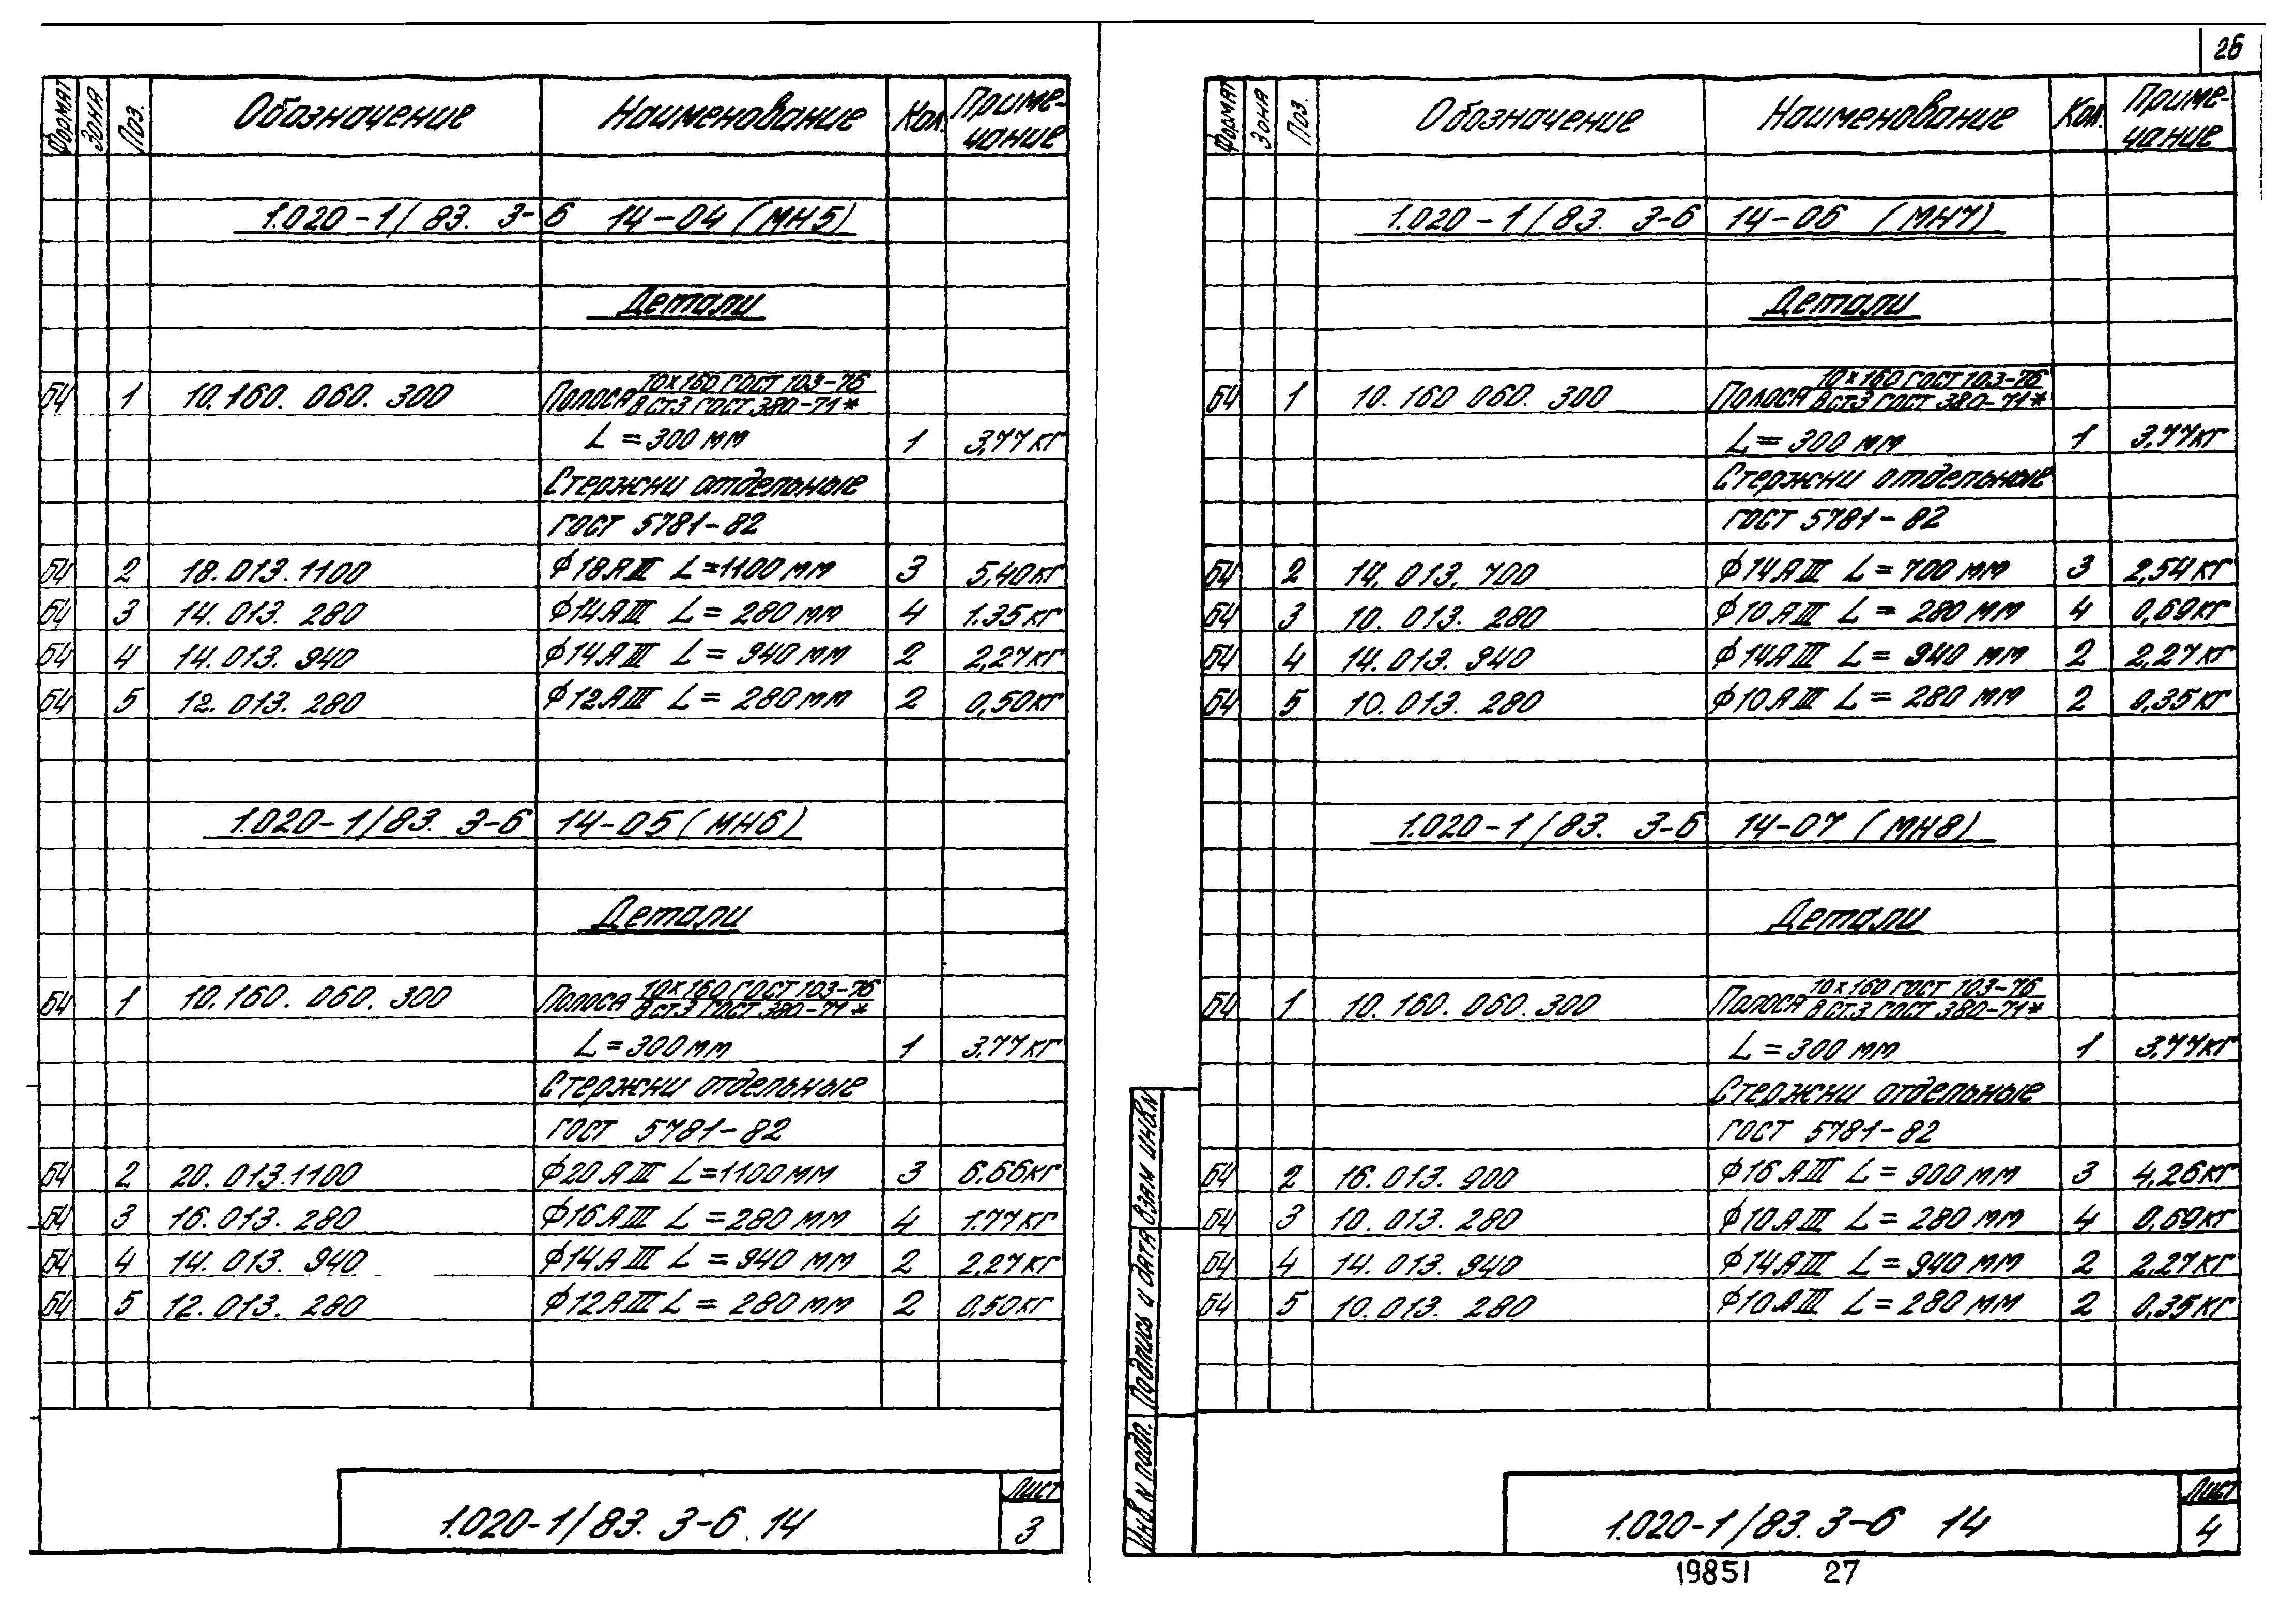 26
Формат Зона Поз. Обозначение Наименование Кол. Приме-
чание
1.020-1/83. 3-6 14-04 (МН5)
Детали
БЧ 1 10.160. 060. 300 Полоса 10×160 ГОСТ 103-76
В Ст3 ГОСТ 380-71*
L = 300 мм 1 3,77 кг
Стержни отдельные
ГОСТ 5781-82
БЧ 2 18.013.1100 ф18АIII L=1100 мм 3 5,40кг
БЧ 3 14.013. 280 ф14АIII L = 280 мм 4 1.35кг
БЧ 4 14.013. 940 ф14АIII L = 940 мм 2 2,27кг
БЧ 5 12.013. 280 ф12АIII L = 280 мм 2 0,50кг
1.020-1/83. 3-6 14-05 (МН6)
Детали
БЧ 1 10.160. 060. 300 Полоса 10×160 ГОСТ 103-76
В Ст3 ГОСТ 380-71*
L = 300 мм 1 3.77 кг
Стержни отдельные
ГОСТ 5781-82
БЧ 2 20.013.1100 ф20АIII L=1100мм 3 6.66кг
БЧ 3 16.013. 280 ф16АIII L = 280 мм 4 1.77кг
БЧ 4 14.013. 940 ф14АIII L = 940 мм 2 2,27кг
БЧ 5 12.013. 280 ф12АIII L = 280 мм 2 0,50кг
1.020-1/83. 3-6 14
Лист
3
Формат Зона Поз. Обозначение Наименование Кол. Приме-
чание
1.020-1/83. 3-6 14-06 (МН7)
Детали
БЧ 1 10. 160 060. 300 Полоса 10×160 ГОСТ 103-76
В Ст3 ГОСТ 380-71*
L = 300 мм 1 3,77кг
Стержни отдельные
ГОСТ 5781-82
БЧ 2 14. 013. 700 ф14АIII L = 700 мм 3 2,54кг
БЧ 3 10. 013. 280 ф10АIII L = 280 мм 4 0,69кг
БЧ 4 14.013. 940 ф14АIII L = 940 мм 2 2,27кг
БЧ 5 10.013. 280 ф10АIII L = 280 мм 2 0,35кг
1.020-1/83. 3-6 14-07 (МН8)
Детали
БЧ 1 10. 160. 060.300 Полоса 10×160 ГОСТ 103-76
В Ст.3 ГОСТ 380-71*
L = 300 мм 1 3,77кг
Стержни отдельные
ГОСТ 5781-82
БЧ 2 16. 013. 900 ф16АIII L = 900 мм 3 4,26кг
БЧ 3 10. 013. 280 ф10АIII L = 280 мм 4 0,69кг
БЧ 4 14. 013. 940 ф14АIII L = 940 мм 2 2,27кг
БЧ 5 10.013. 280 ф10АIII L = 280 мм 2 0,35кг
Инв. N подл. Подпись и дата Взам инв. N
1.020-1/83. 3-6 14
Лист
4
19851 27